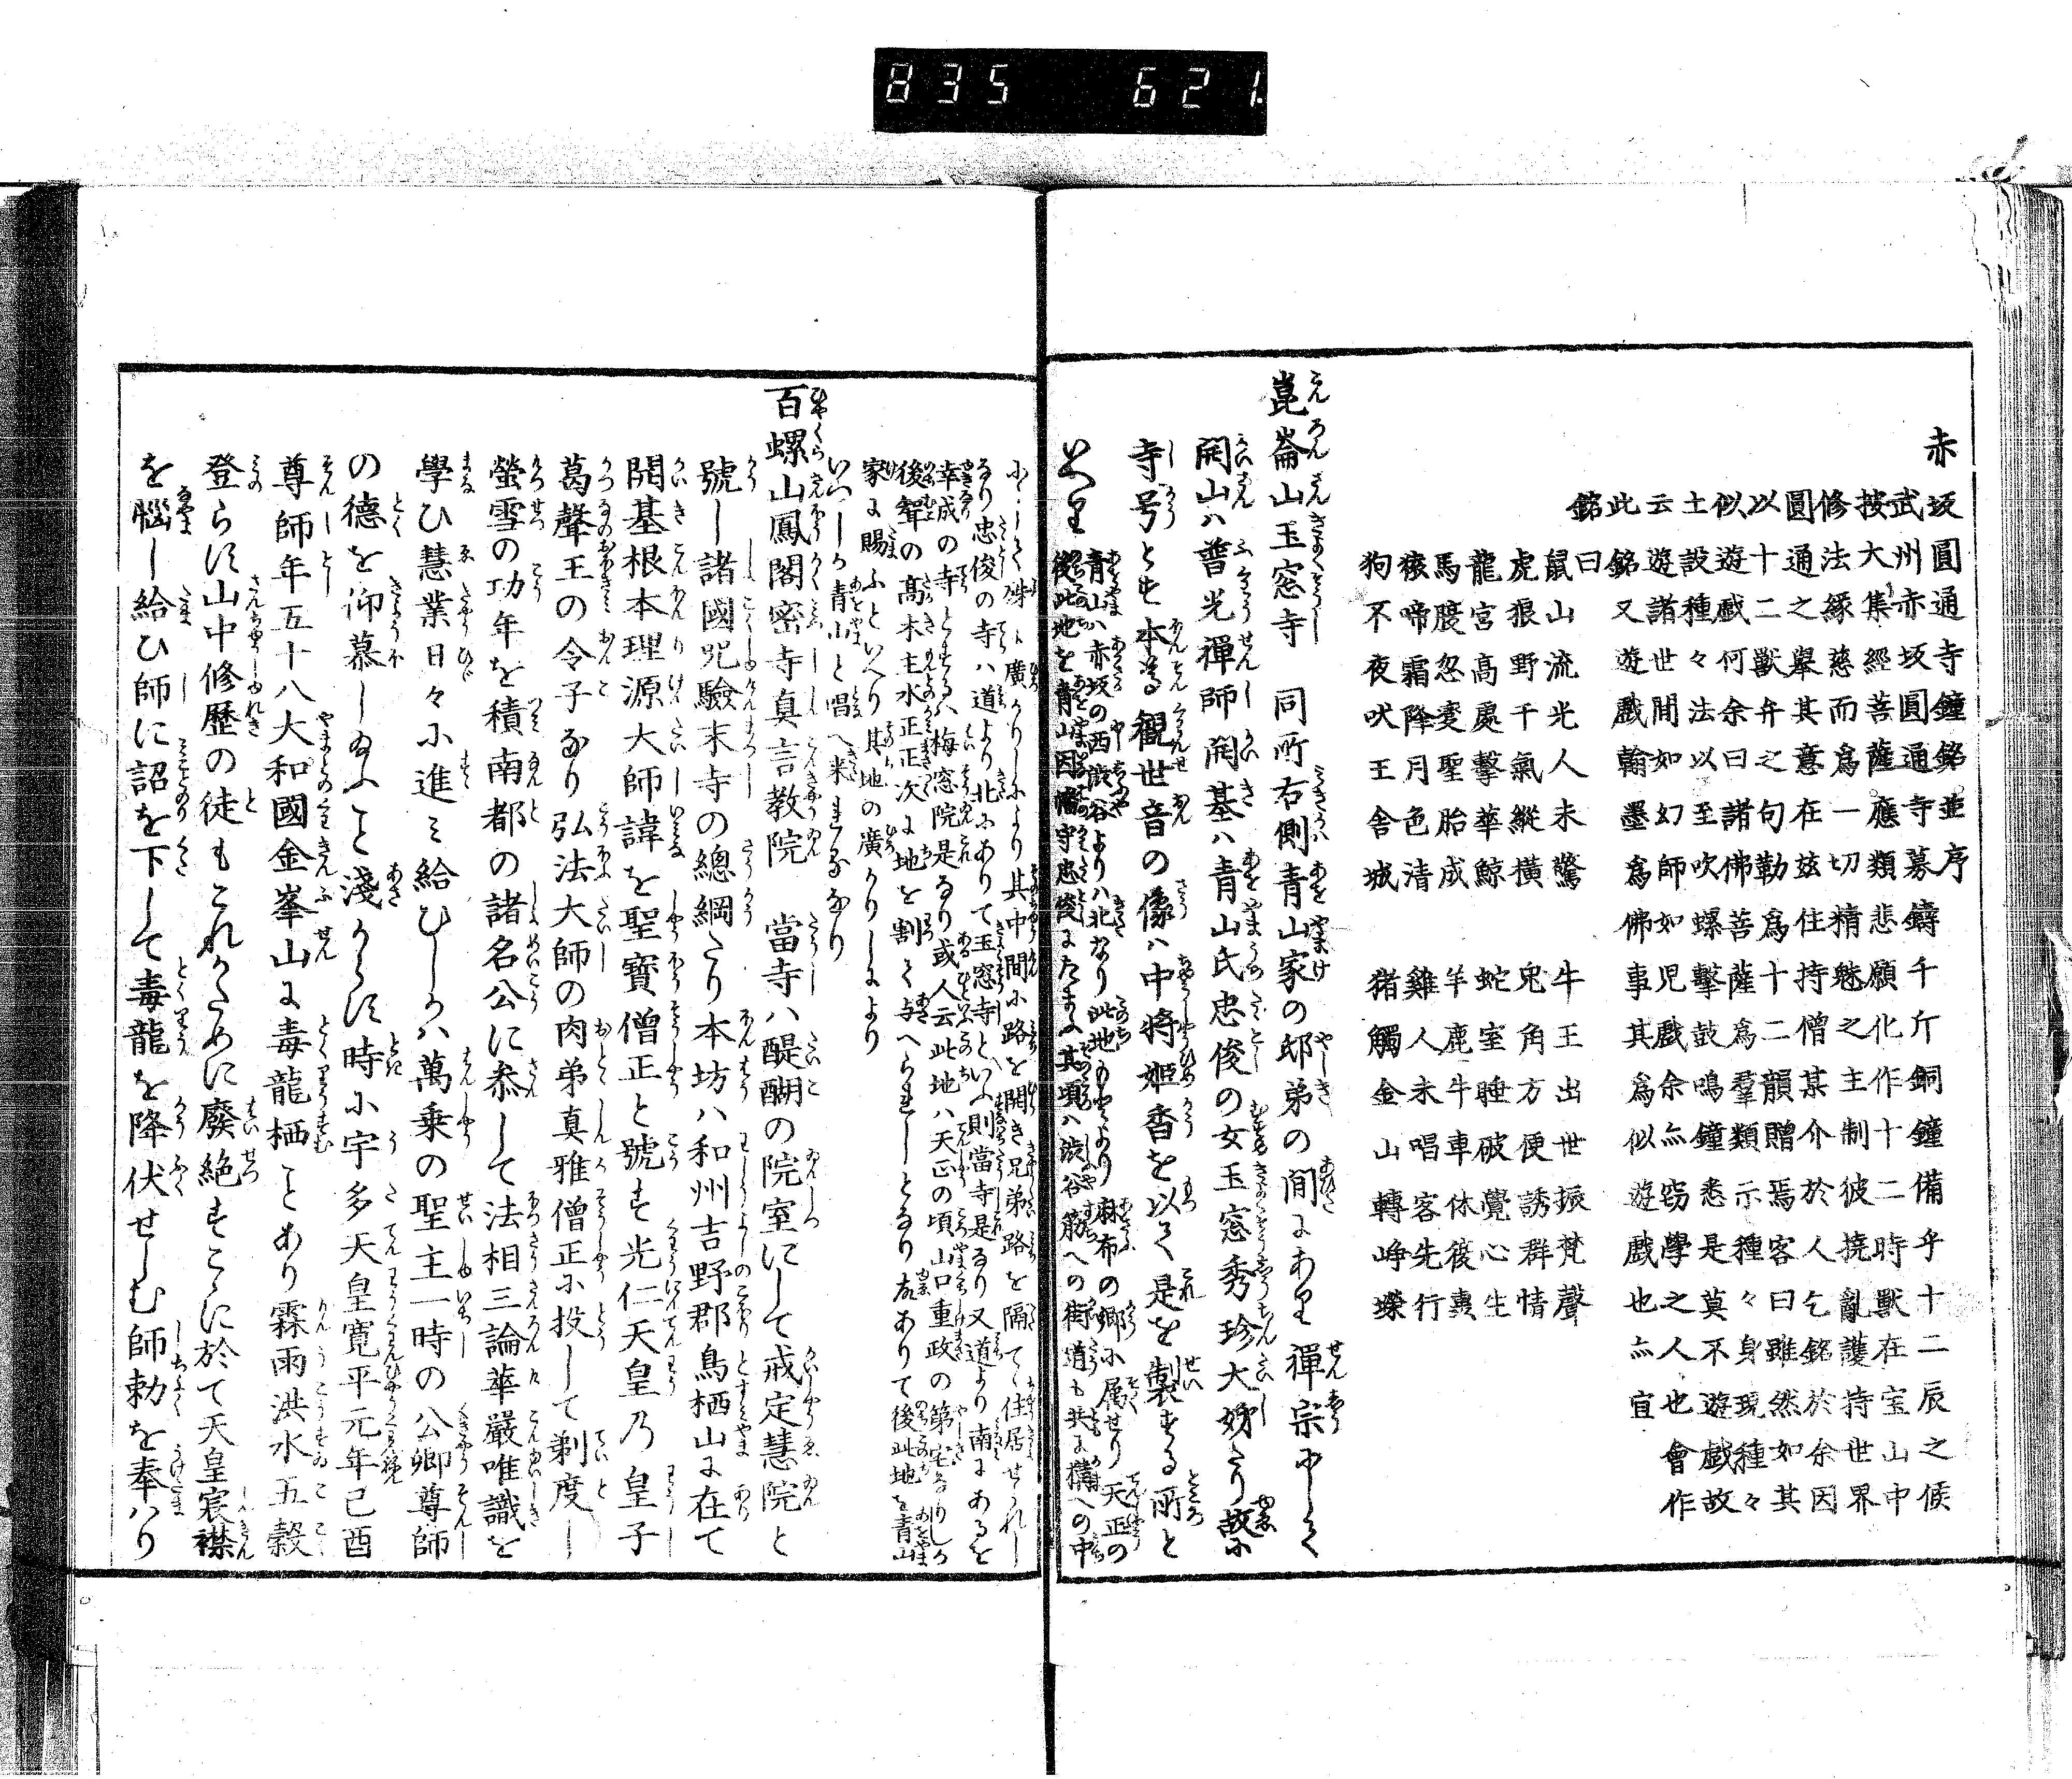 赤坂圓通寺鐘銘並序
武州赤坂圓通寺募鑄千斤銅鐘備乎十二辰之候
按大集經菩薩應類悲願化作十二時獸在宝山中
修法縁慈而爲一切精魅之主制彼撓亂護持世界
圓通之擧其意在兹住持僧某介於人乞銘於余因
以十二獸弁之句勒爲十二韻贈焉客曰雖然如其
似遊戲何余曰諸佛菩薩爲羣類示種々身現種々
土設種々法以至吹螺擊鼓鳴鐘悉是莫不遊戲故
云遊諸世間如幻師如児戲余亦窃學之人也會作
此銘又遊戲翰墨爲佛事其爲似遊戲也亦宜
銘曰
鼠山流光人未驚　牛王出世振梵聲
虎狼野千氣縱橫　兎角方便誘群情
龍宮高處擊華鯨　蛇室睡破覺心生
馬腹忽変聖胎成　羊鹿牛車休後轟
猿啼霜降月色清　雞人未唱客先行
狗不夜吠王舎城　猪觸金山轉崢嶸
崑崙山玉窓寺　同所右側青山家の邸弟の間にあり禪宗にして
開山ハ普光禪師開基ハ青山氏忠俊の女玉窓秀珍大姉たり故に
寺号とす本尊観世音の像ハ中将姫香を以て是を製する所と
いへり
青山ハ赤坂の西澁谷よりハ北なり此地のもとより麻布の郷に属せり天正の
後此地を青山因幡守忠俊にたまふ其頃ハ澁谷筋への街道も共に構への中
にして殊に廣かりしにより其中間に路を開き兄弟路を隔てゝ住居せられし
なり忠俊の寺ハ道より北にありて玉窓寺といふ則當寺是なり又道より南にあるを
幸成の寺とする梅窓院是なり或人云此地ハ天正の頃山口重政の第宅なりしか
後聟の髙木主水正正次に地を割て与へられしとなり故ありて後此地を青山
家に賜ふといへり其地の廣かりしにより
いつしか青山と唱へ来れるなり
百螺山鳳閣密寺真言教院　當寺ハ醍醐の院室にして戒定慧院と
號し諸國咒驗末寺の總綱たり本坊ハ和州吉野郡鳥栖山に在て
開基根本理源大師諱を聖寶僧正と號す光仁天皇乃皇子
葛聲王の令子なり弘法大師の肉弟真雅僧正に投して剃度し
螢雪の功年を積南都の諸名公に叅して法相三論華嚴唯識を
學ひ慧業日々に進ミ給ひしかハ萬乗の聖主一時の公卿尊師
の德を仰慕し給ふこと淺からす時に宇多天皇寛平元年己酉
尊師年五十八大和國金峯山に毒龍栖ことあり霖雨洪水五穀
登らす山中修歴の徒もこれかために廢絶すこゝに於て天皇宸襟
を腦し給ひ師に詔を下して毒龍を降伏せしむ師勅を奉ハり
835 621